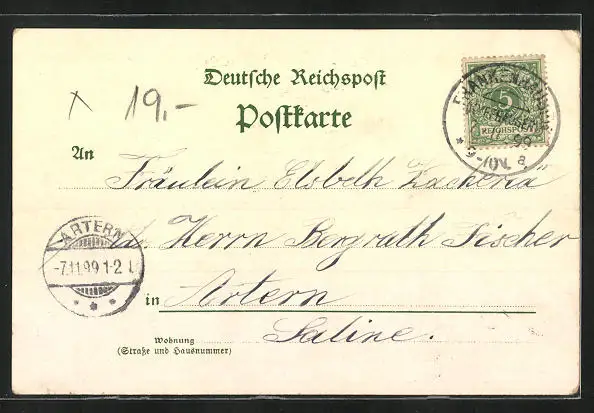 Deutsche Reichspost
x 19.-
Postkarte
FRANKENHAUSEN
5
REICHSPOST
99
9-10V. a.
An
Fräulein Elsbeth Zacheriä
Herrn Bergrath Fischer
ARTERN
-7.11.99 1-2
in Artern
Saline.
Wohnung
(Straße und Hausnummer)